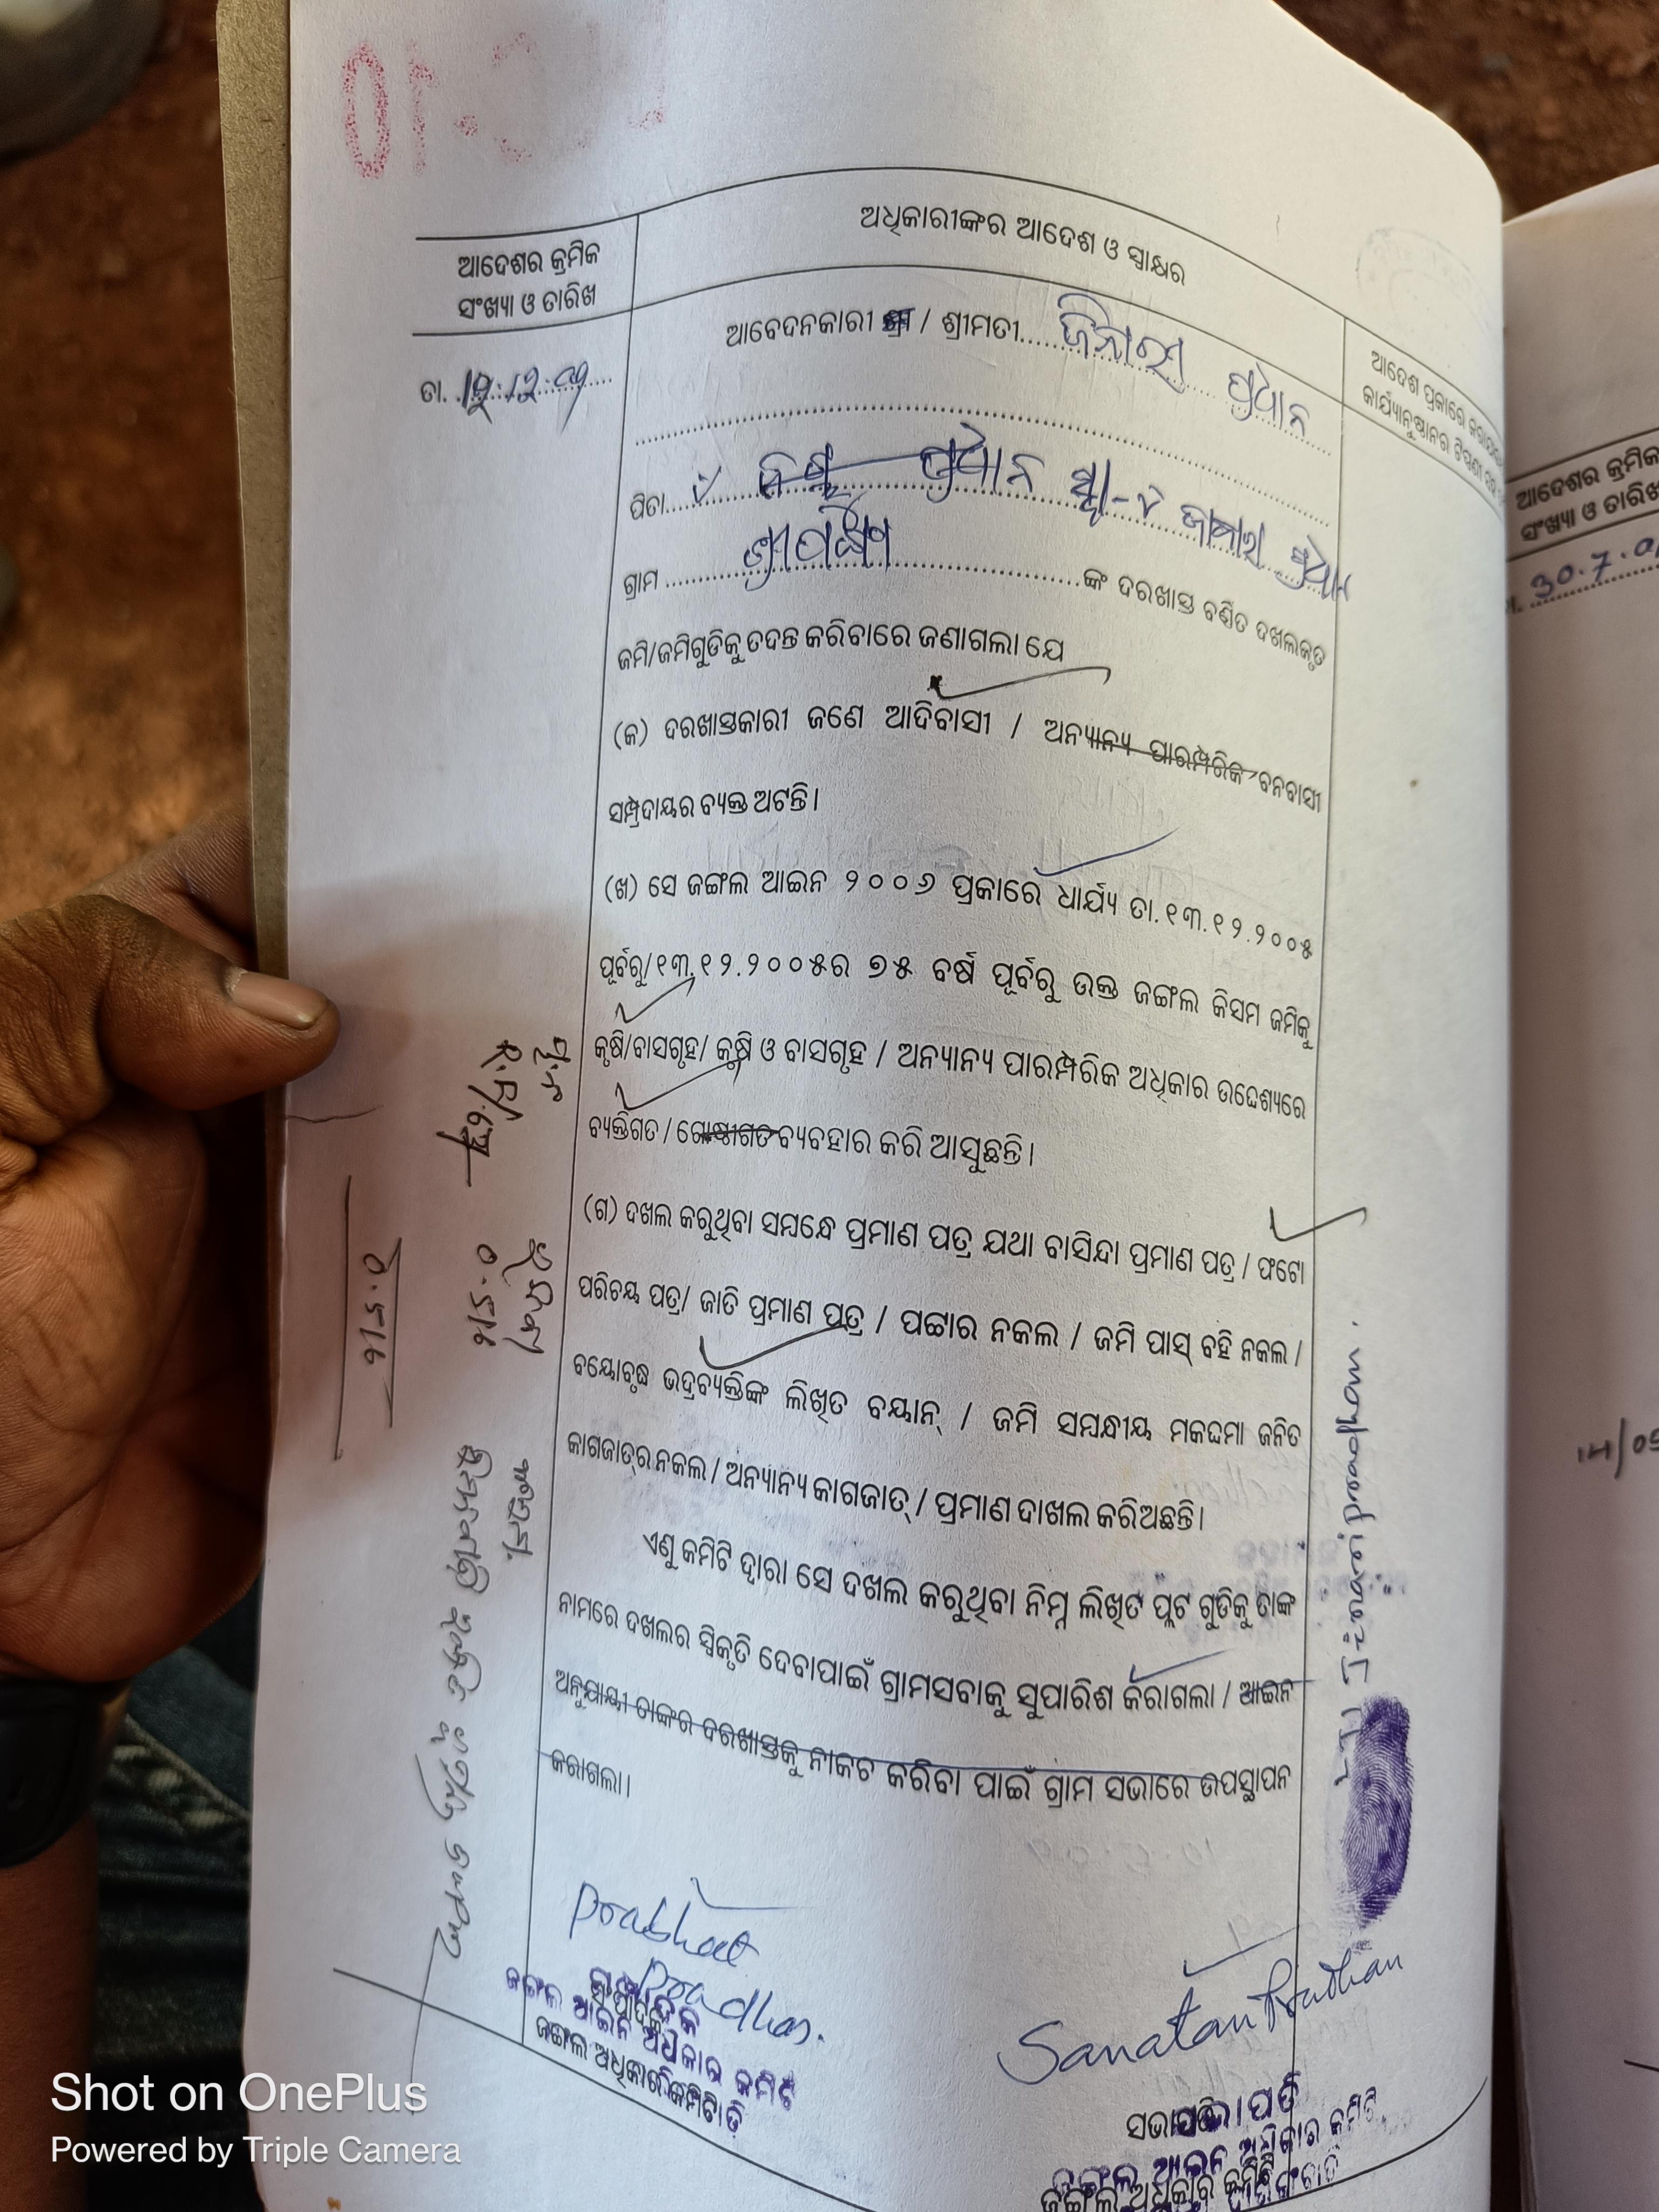 ଆଦେଶର କ୍ରମିକ
ସଂଖ୍ୟା ଓ ତାରିଖ
ଅଧିକାରୀଙ୍କର ଆଦେଶ ଓ ସ୍ୱାକ୍ଷର
ଆଦେଶ ପ୍ରକାରେ
କାର୍ଯ୍ୟାନୁଷ୍ଠାନର ଟିପ୍ପଣୀ
ତା.
ଆବେଦନକାରୀ ଶ୍ରୀ / ଶ୍ରୀମତୀ.... ଜିନାରୀ ପ୍ରଧାନ
ପିତା.... ପ୍ରଧାନ
ଗ୍ରାମ ........ ଙ୍କ ଦରଖାସ୍ତ ବର୍ଣ୍ଣିତ ଦଖଲକୃତ
ଜମି/ଜମିଗୁଡିକୁ ତଦନ୍ତ କରିବାରେ ଜଣାଗଲା ଯେ
(କ) ଦରଖାସ୍ତକାରୀ ଜଣେ ଆଦିବାସୀ / ଅନ୍ୟାନ୍ୟ ପାରମ୍ପରିକ ବନବାସୀ
ସମ୍ପ୍ରଦାୟର ବ୍ୟକ୍ତ ଅଟନ୍ତି।
(ଖ) ସେ ଜଙ୍ଗଲ ଆଇନ ୨୦୦୬ ପ୍ରକାରେ ଧାର୍ଯ୍ୟ ତା.୧୩.୧୨.୨୦୦୫
ପୂର୍ବରୁ/୧୩.୧୨.୨୦୦୫ର ୭୫ ବର୍ଷ ପୂର୍ବରୁ ଉକ୍ତ ଜଙ୍ଗଲ କିସମ ଜମିକୁ
କୃଷି/ବାସଗୃହ/ କୃଷି ଓ ବାସଗୃହ / ଅନ୍ୟାନ୍ୟ ପାରମ୍ପରିକ ଅଧିକାର ଉଦ୍ଦେଶ୍ୟରେ
ବ୍ୟକ୍ତିଗତ / ଗୋଷ୍ଠୀଗତ ବ୍ୟବହାର କରି ଆସୁଛନ୍ତି।
(ଗ) ଦଖଲ କରୁଥିବା ସମ୍ବନ୍ଧେ ପ୍ରମାଣ ପତ୍ର ଯଥା ବାସିନ୍ଦା ପ୍ରମାଣ ପତ୍ର / ଫଟୋ
ପରିଚୟ ପତ୍ର/ ଜାତି ପ୍ରମାଣ ପତ୍ର / ପଟ୍ଟାର ନକଲ / ଜମି ପାସ୍ ବହି ନକଲ /
ବୟୋବୃଦ୍ଧ ଭଦ୍ରବ୍ୟକ୍ତିଙ୍କ ଲିଖିତ ବୟାନ୍ / ଜମି ସମ୍ବନ୍ଧୀୟ ମକଦ୍ଦମା ଜନିତ
କାଗଜାତ୍‌ର ନକଲ / ଅନ୍ୟାନ୍ୟ କାଗଜାତ୍ / ପ୍ରମାଣ ଦାଖଲ କରିଅଛନ୍ତି।
ଏଣୁ କମିଟି ଦ୍ୱାରା ସେ ଦଖଲ କରୁଥିବା ନିମ୍ନ ଲିଖିତ ପ୍ଲଟ ଗୁଡିକୁ ତାଙ୍କ
ନାମରେ ଦଖଲର ସ୍ୱିକୃତି ଦେବାପାଇଁ ଗ୍ରାମସବାକୁ ସୁପାରିଶ କରାଗଲା / ଆଇନ
ଅନୁଯାୟୀ ତାଙ୍କର ଦରଖାସ୍ତକୁ ନାକଚ କରିବା ପାଇଁ ଗ୍ରାମ ସଭାରେ ଉପସ୍ଥାପନ
କରାଗଲା।
0.516
0.516
LTI Jinari pradhan.
Prabhat
Pradhan.
ସଂପାଦକ
ଜଙ୍ଗଲ ଆଇନ ଅଧିକାର କମିଟି
Sanatan Pradhan
ସଭାପତି
ଜଙ୍ଗଲ ଆଇନ ଅଧିକାର କମିଟି
ଜଙ୍ଗଲ ଅଧିକାର କମିଟି
ଆଦେଶର କ୍ରମିକ
ସଂଖ୍ୟା ଓ ତାରିଖ
30.7.0
14/05
Shot on OnePlus
Powered by Triple Camera